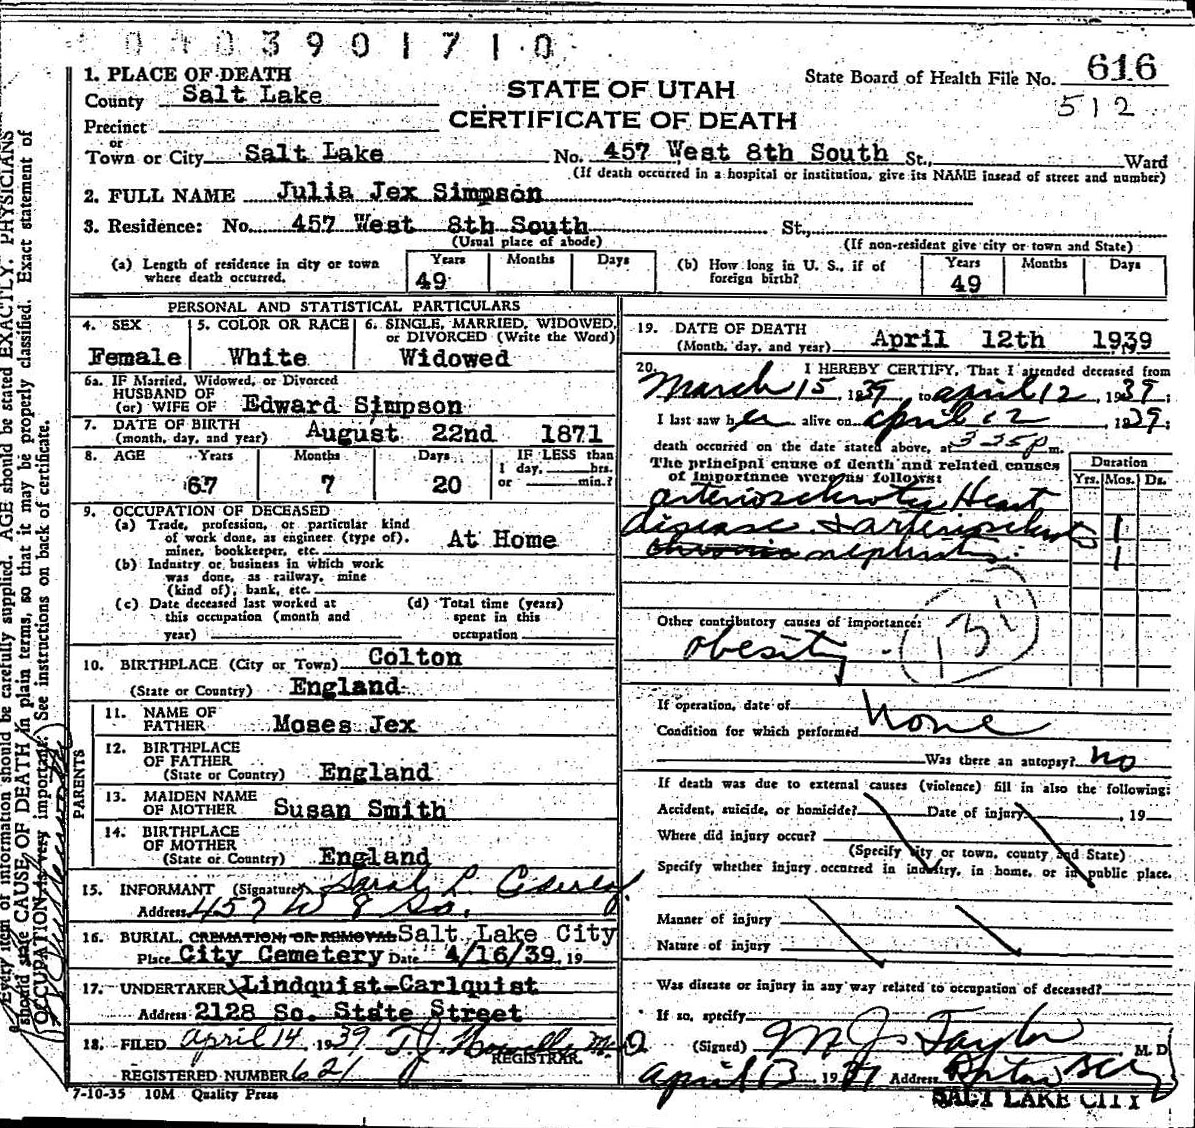 0 4 0 3 9 0 1 7 1 0
1. PLACE OF DEATH
County Salt Lake
STATE OF UTAH
CERTIFICATE OF DEATH
State Board of Health File No. 616
512
Precinct
or
Town or City Salt Lake No. 457 West 8th South St., Ward
(If death occurred in a hospital or institution, give its NAME insead of street and number)
2. FULL NAME Julia Jex Simpson
3. Residence: No. 457 West 8th South St.,
(Usual place of abode) (If non-resident give city or town and State)
(a) Length of residence in city or town where death occurred. Years 49 Months Days
(b) How long in U. S., if of foreign birth? Years 49 Months Days
PERSONAL AND STATISTICAL PARTICULARS
4. SEX Female
5. COLOR OR RACE White
6. SINGLE, MARRIED, WIDOWED, or DIVORCED (Write the Word) Widowed
6a. IF Married, Widowed, or Divorced
HUSBAND OF
(or) WIFE OF Edward Simpson
7. DATE OF BIRTH
(month, day, and year) August 22nd 1871
8. AGE Years 67 Months 7 Days 20 IF LESS than 1 day, hrs. or min.?
9. OCCUPATION OF DECEASED
(a) Trade, profession, or particular kind
of work done, as engineer (type of). At Home
miner, bookkeeper, etc.
(b) Industry or business in which work
was done, as railway, mine
(kind of), bank, etc.
(c) Date deceased last worked at this occupation (month and year)
(d) Total time (years) spent in this occupation
10. BIRTHPLACE (City or Town) Colton
(State or Country) England
PARENTS
11. NAME OF
FATHER Moses Jex
12. BIRTHPLACE
OF FATHER
(State or Country) England
13. MAIDEN NAME
OF MOTHER Susan Smith
14. BIRTHPLACE
OF MOTHER
(State or Country) England
15. INFORMANT (Signature) Sarah L
Address 457 W 8 So.
16. BURIAL, CREMATION, OR REMOVAL Salt Lake City
Place City Cemetery Date 4/16/39, 19
17. UNDERTAKER Lindquist-Carlquist
Address 2128 So. State Street
18. FILED April 14, 1939
REGISTRAR.
REGISTERED NUMBER 621
7-10-35 10M Quality Press
19. DATE OF DEATH
(Month, day, and year) April 12th 1939
20. I HEREBY CERTIFY, That I attended deceased from
March 15, 1939, to April 12, 1939;
I last saw her alive on April 12, 1939;
death occurred on the date stated above, at 3 35 p m.
The principal cause of death and related causes
of importance were as follows:
Duration
Yrs. Mos. Ds.
arteriosclerotic Heart
disease & arteriosclerotic 1
chronic nephritis. 1
Other contributory causes of importance:
obesity
131
If operation, date of
Condition for which performed none
Was there an autopsy? no
If death was due to external causes (violence) fill in also the following:
Accident, suicide, or homicide? Date of injury , 19
Where did injury occur?
(Specify city or town, county and State)
Specify whether injury occurred in industry, in home, or in public place.
Manner of injury
Nature of injury
Was disease or injury in any way related to occupation of deceased?
If so, specify
(Signed) M J Taylor M. D.
April 13, 19 Address
SALT LAKE CITY
Every item of information should be carefully supplied. AGE should be stated EXACTLY. PHYSICIANS
should state CAUSE OF DEATH in plain terms, so that it may be properly classified. Exact statement of
OCCUPATION is very important. See instructions on back of certificate.